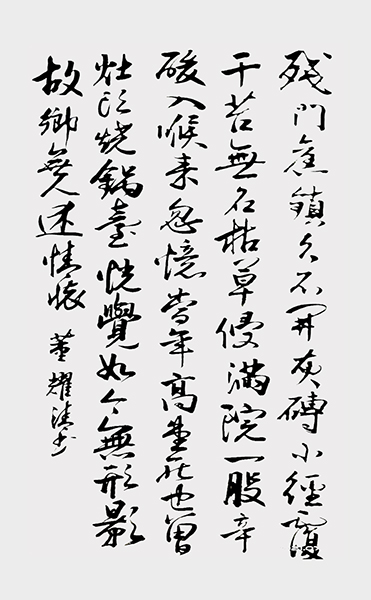 殘門舊鎖久不開灰磚小徑覆
干苔無名枯草侵滿院一股辛
酸入喉來忽憶當年高堂在也曾
灶頭燒鍋臺恍覺如今無形影
故鄉無人述情懷 董耀清書